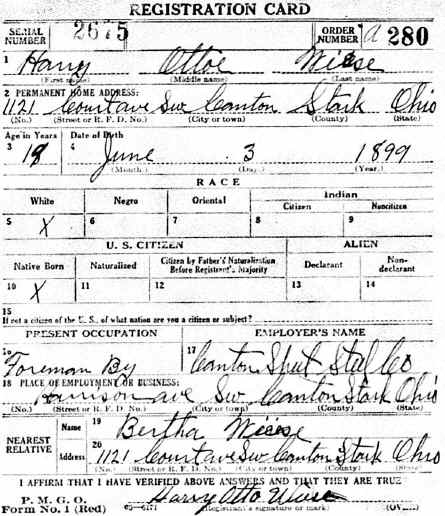 REGISTRATION CARD
SERIAL NUMBER 2675 ORDER NUMBER A 280
1 Harry Ottoe Wiese
(First name) (Middle name) (Last name)
2 PERMANENT HOME ADDRESS:
1121 Court ave Sw Canton Stark Ohio
(No.) (Street or R. F. D. No.) (City or town) (County) (State)
Age in Years Date of Birth
3 19 4 June 3 1899
(Month.) (Day.) (Year.)
RACE
White Negro Oriental Indian
Citizen Noncitizen
5 X 6 7 8 9
U. S. CITIZEN ALIEN
Native Born Naturalized Citizen by Father's Naturalization Before Registrant's Majority Declarant Non-declarant
10 X 11 12 13 14
15
If not a citizen of the U. S., of what nation are you a citizen or subject?
PRESENT OCCUPATION EMPLOYER'S NAME
16 Foreman By 17 Canton Sheet Steel Co
18 PLACE OF EMPLOYMENT OR BUSINESS:
Harrison ave Sw Canton Stark Ohio
(No.) (Street or R. F. D. No.) (City or town) (County) (State)
NEAREST RELATIVE Name 19 Bertha Wiese
Address 20 1121 Court ave Sw Canton Stark Ohio
(No.) (Street or R. F. D. No.) (City or town) (County) (State)
I AFFIRM THAT I HAVE VERIFIED ABOVE ANSWERS AND THAT THEY ARE TRUE
P. M. G. O. Harry Otto Wiese
Form No. 1 (Red) 03-6171 (Registrant's signature or mark) (OVER)